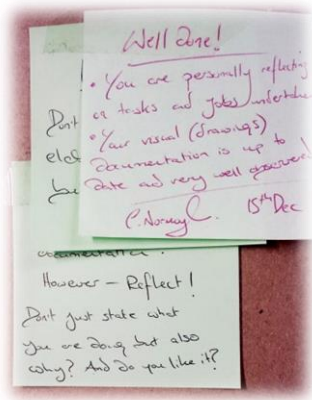 Well done!
• You are personally reflecting
on tasks and jobs undertaken
• Your visual (drawings)
documentation is up to
date and very well observed
15th Dec
Don't
documentation.
However – Reflect!
Don't just state what
you are doing but also
why? And do you like it?